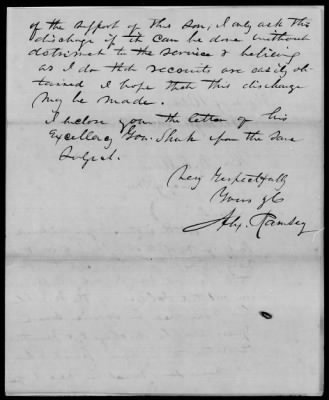 of the support of this son, I only ask this
discharge if it can be done without
detriment to the service & believing
as I do that recruits are easily ob-
tained I hope that this discharge
may be made.
I inclose you the letter of his
Excellency Gov. Shunk upon the same
subject.
Very respectfully
Yours &c
Alx. Ramsey